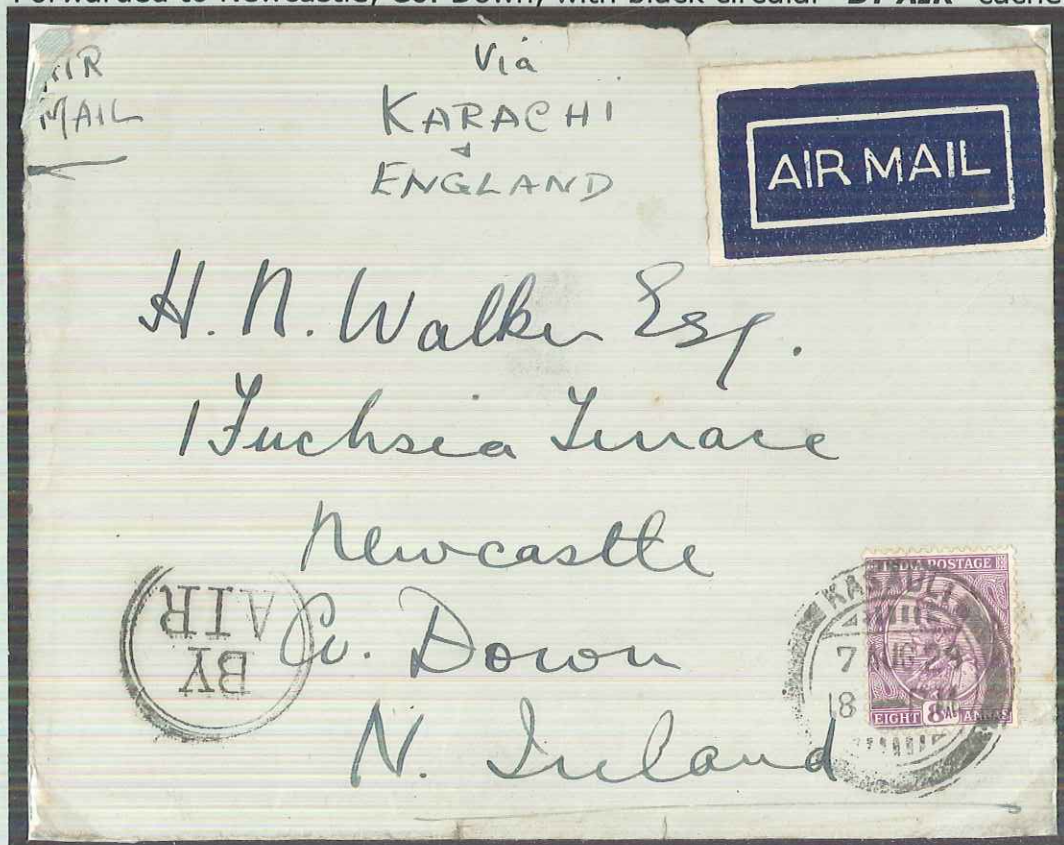 Forwarded to Newcastle, Co. Down, with black circular "BY AIR" cache
AIR
MAIL
Via
KARACHI
&
ENGLAND
AIR MAIL
H. N. Walker Esq.
1 Fuchsia Terrace
Newcastle
Co. Down
N. Ireland
BY
AIR
INDIA POSTAGE
EIGHT 8As ANNAS
KASAULI
7 AUG 29
18